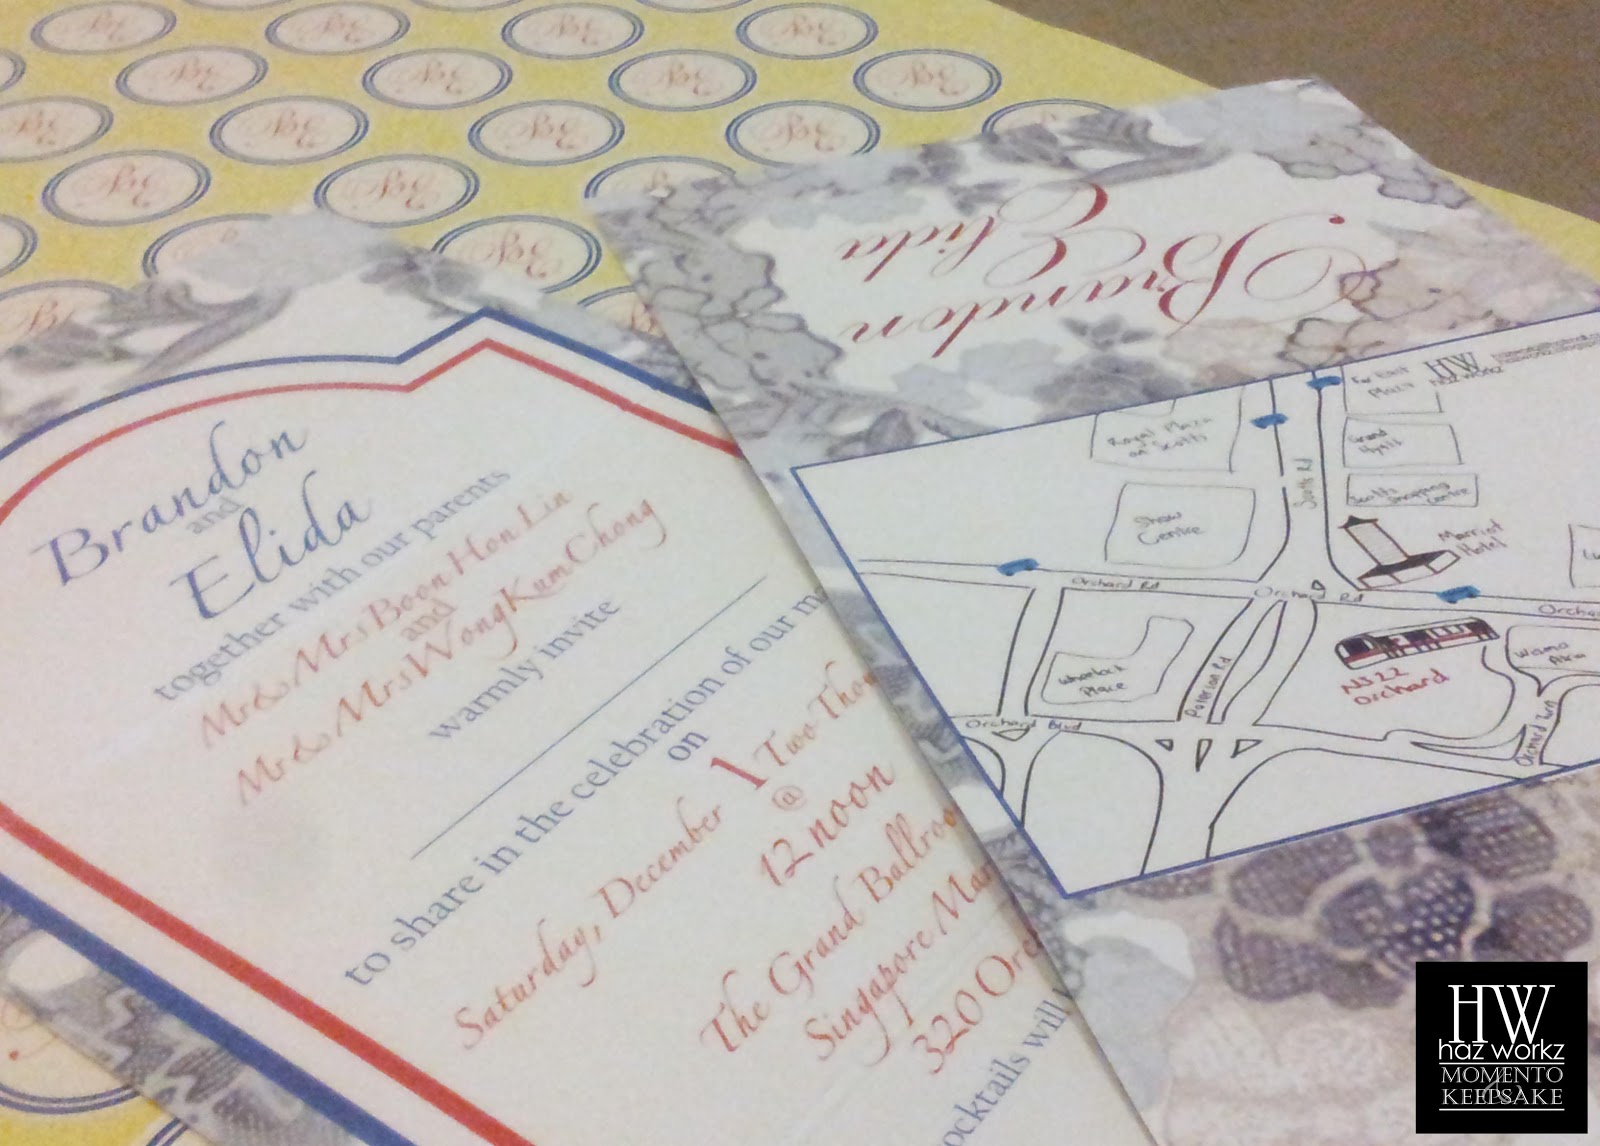 Brandon
and
Elida
together with our parents
Mr & Mrs Boon Hon Lin
and
Mr & Mrs Wong Kum Chong
warmly invite
to share in the celebration of our
on
Saturday, December 1 Two
@
12 noon
The Grand
Singapore
320
will
Brandon
Elida
HW
haz workz
Royal Plaza
on Scotts
Far East
Plaza
Grand
Hyatt
Scotts
Shopping
Centre
Scotts Rd
Shaw
Centre
Marriot
Hotel
Orchard Rd
Orchard Rd
Wheelock
Place
Paterson Rd
NS22
Orchard
Orchard Blvd
Orchard Turn
HW
haz workz
MOMENTO
KEEPSAKE